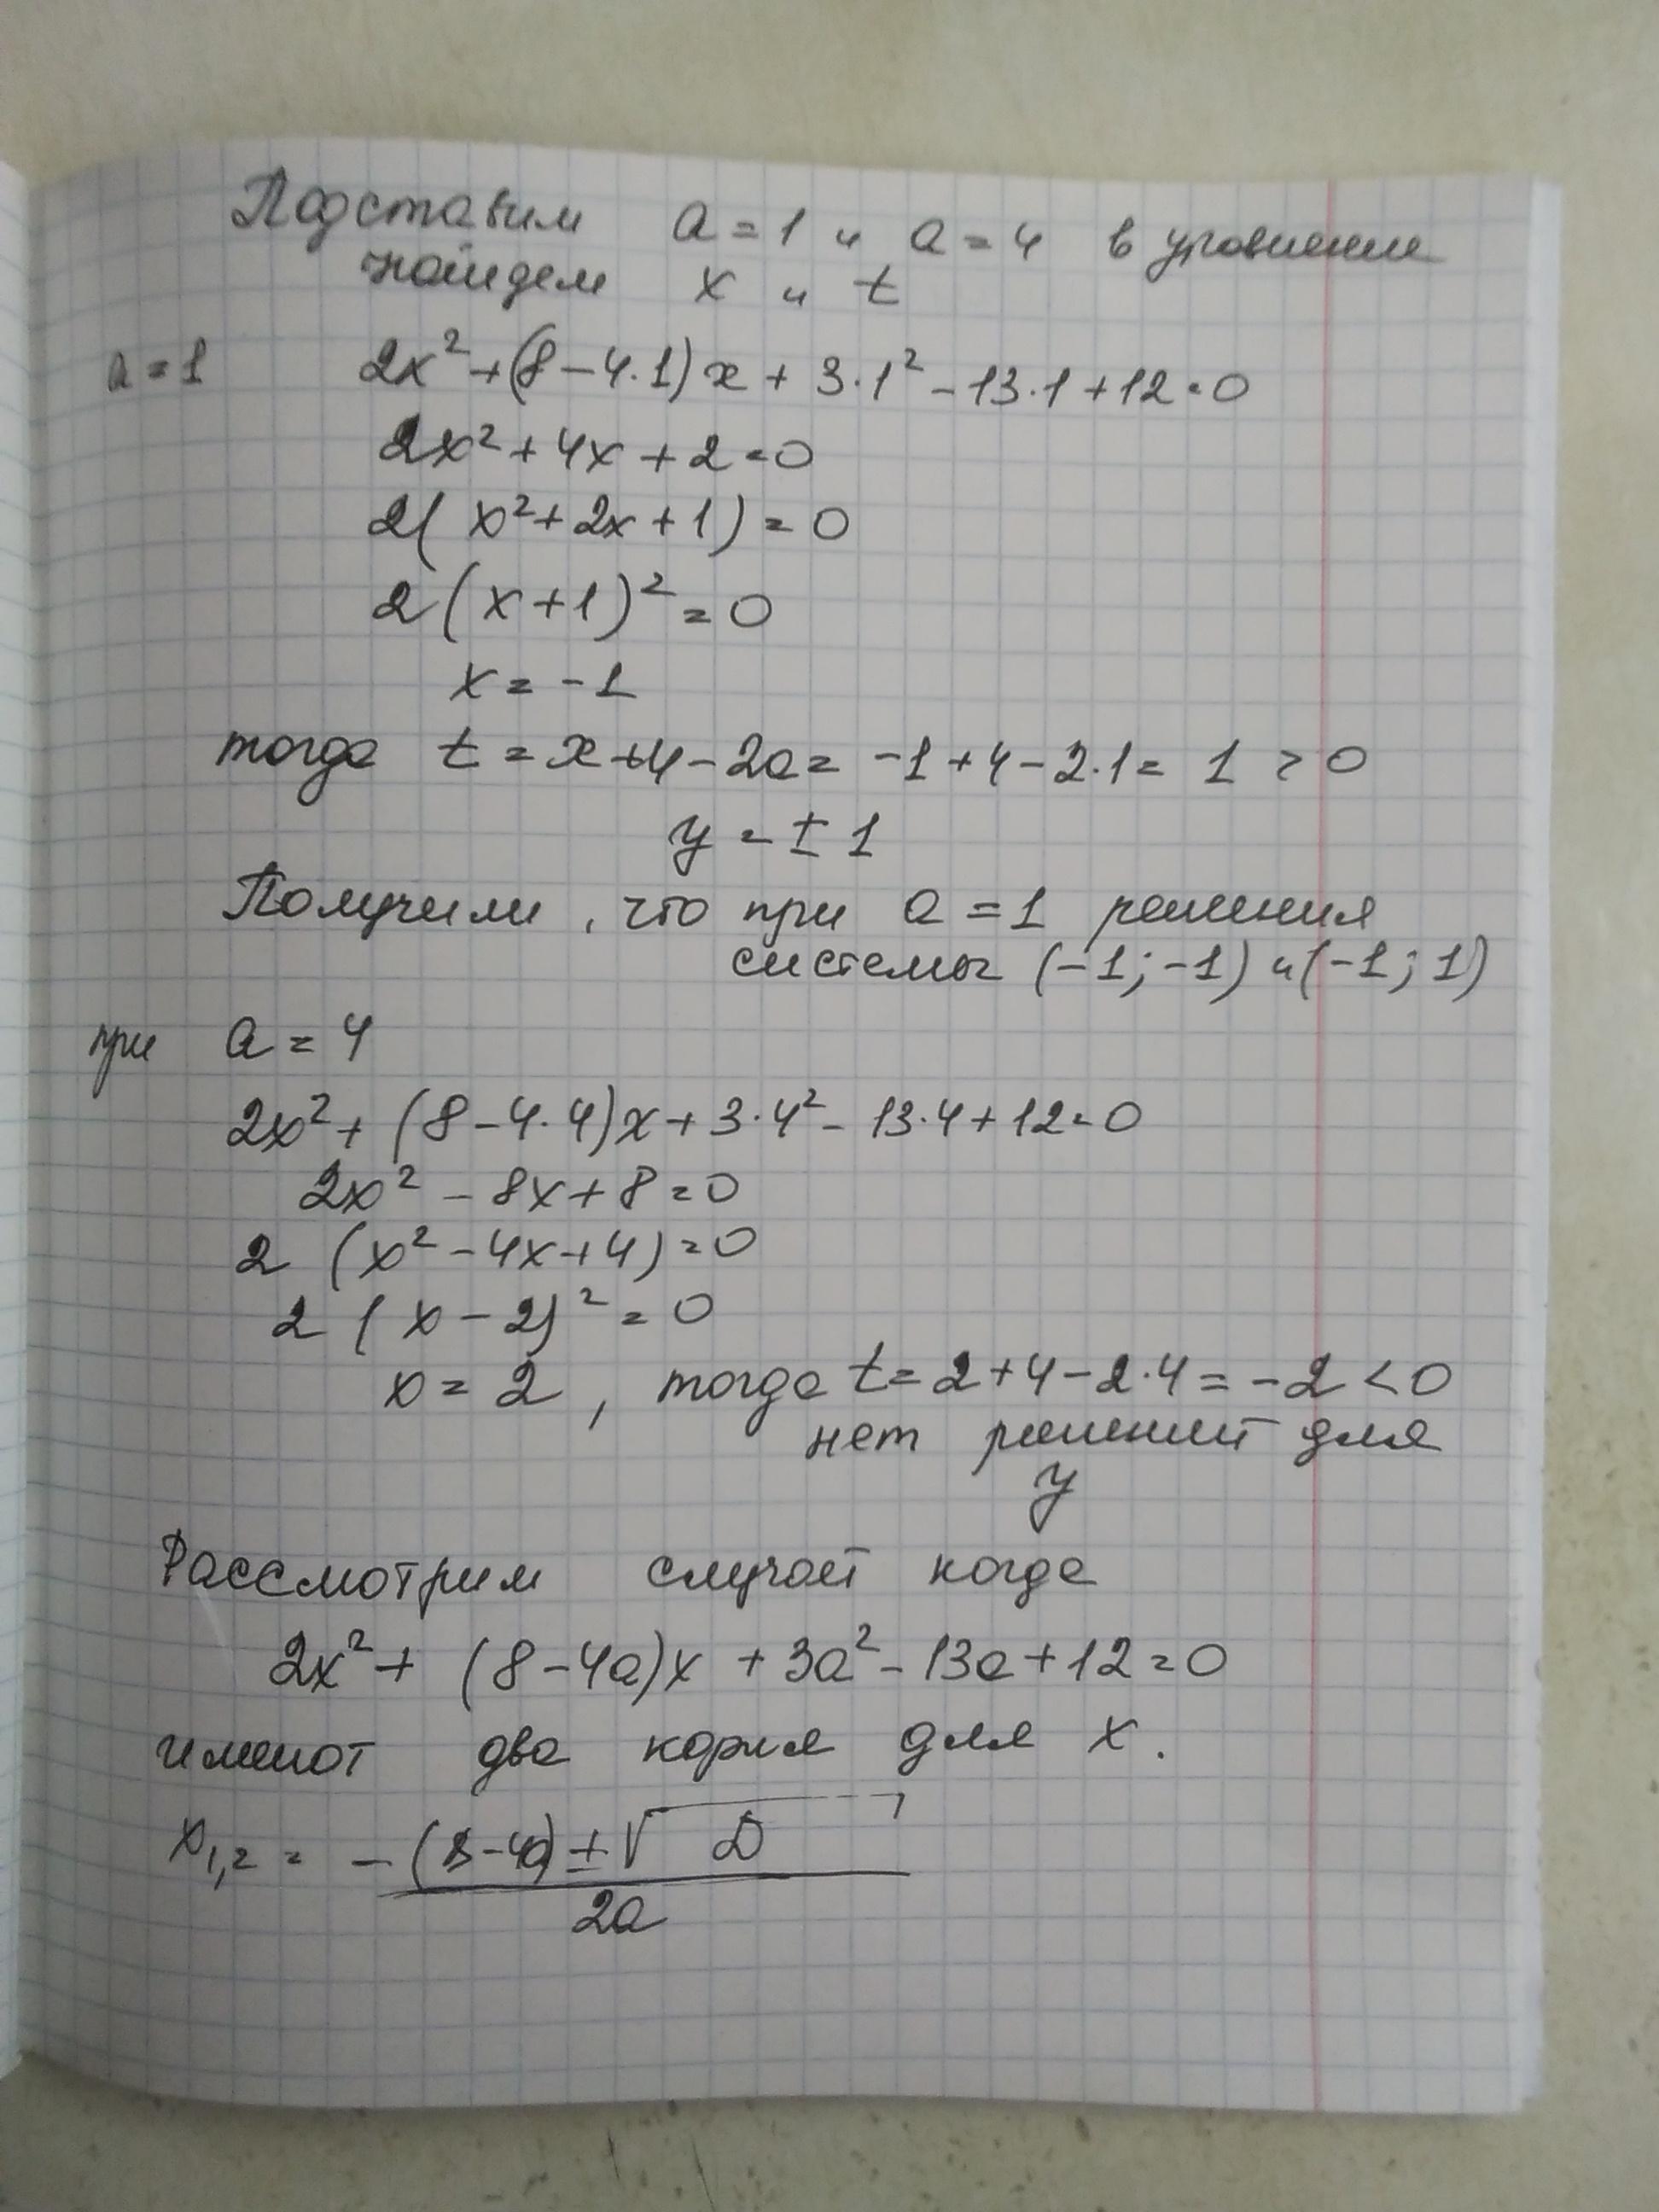 Подставим a = 1 и a = 4 в уровнение
найдем x и t
a = 1 2x² + (8 - 4·1)x + 3·1² - 13·1 + 12 = 0
2x² + 4x + 2 = 0
2(x² + 2x + 1) = 0
2(x + 1)² = 0
x = -1
тогда t = x + 4 - 2a = -1 + 4 - 2·1 = 1 > 0
y = ± 1
Получили, что при a = 1 решения
системы (-1; -1) и (-1; 1)
при a = 4
2x² + (8 - 4·4)x + 3·4² - 13·4 + 12 = 0
2x² - 8x + 8 = 0
2 (x² - 4x + 4) = 0
2 (x - 2)² = 0
x = 2, тогда t = 2 + 4 - 2·4 = -2 < 0
нет решений для
y
Рассмотрим случай когда
2x² + (8 - 4a)x + 3a² - 13a + 12 = 0
имеют два корня для x.
x₁,₂ = -(8-4a) ± √D / 2a